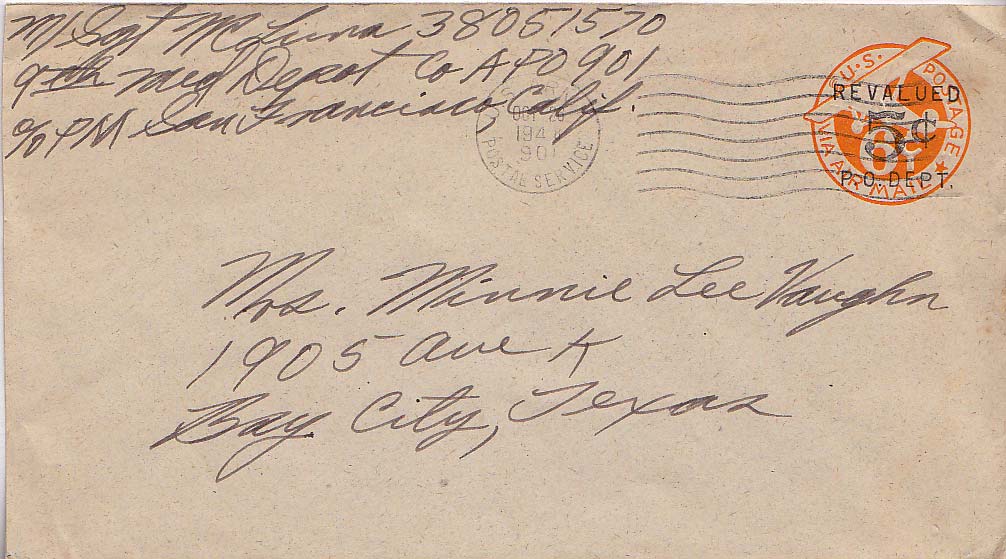 M/Sgt McLuna 38051570
9th Med Depot Co APO 901
c/o PM San Francisco Calif.
U.S.
OCT
194
901
POSTAL SERVICE
U.S. POSTAGE
REVALUED
5¢
6¢
P.O. DEPT.
VIA AIR MAIL
Mrs. Minnie Lee Vaughn
1905 Ave K
Bay City, Texas